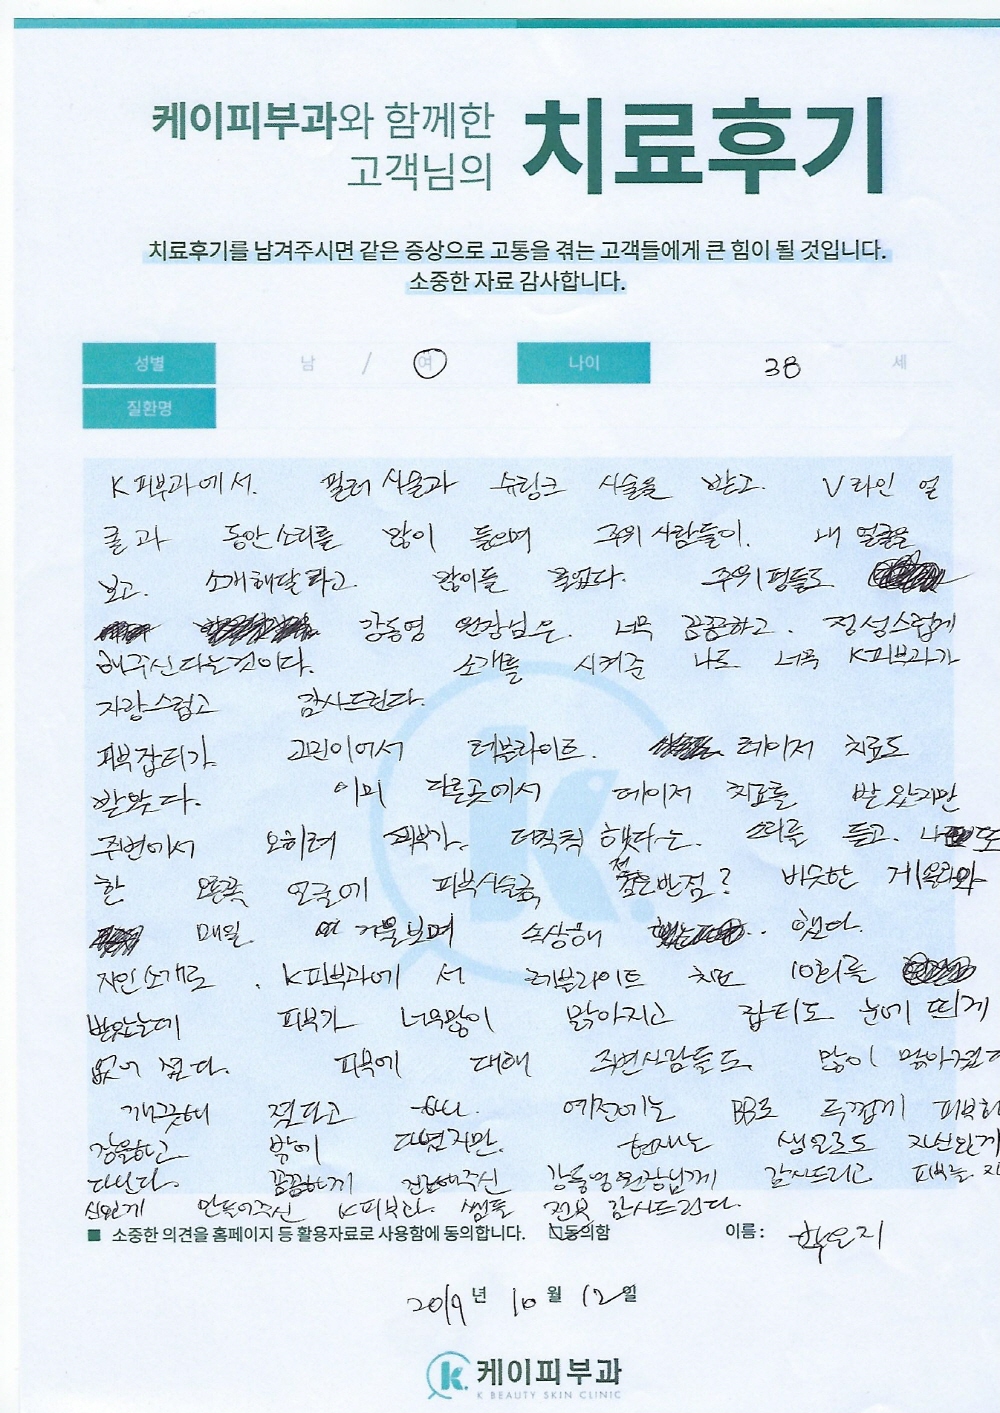 케이피부과와 함께한
고객님의
치료후기
치료후기를 남겨주시면 같은 증상으로 고통을 겪는 고객들에게 큰 힘이 될 것입니다.
소중한 자료 감사합니다.
성별 남 / 여 나이 38 세
질환명
K피부과에서. 필러 시술과 슈링크 시술을 받고. V라인 얼
굴과 동안소리를 많이 들으며 주위 사람들이. 내 얼굴을
보고. 소개해달라고 많이들 물었다. 주위평들도
강동영 원장님은. 너무 꼼꼼하고. 정성스럽게
해주신다는것이다. 소개를 시켜준 나도 너무 K피부과가
자랑스럽고 감사드린다.
피부잡티가 고민이어서 레블라이트. 레이저 치료도
받았다. 이미 다른곳에서 레이저 치료를 받았지만
주변에서 오히려 피부가. 더칙칙 했다는. 소리를 듣고. 또
한 오른쪽 얼굴에 반점? 비슷한
매일 거울보며 속상해 했다.
지인소개로. K피부과에서 레블라이트 치료 10회를
받았는데 피부가 너무많이 맑아지고 잡티도 눈에 띄게
없어졌다. 피부에 대해 주변사람들도. 많이 맑아졌다
깨끗해 졌다고 예전에는 BB로 두껍게 피부화
장을하고 밖에 다녔지만. 현재는 생얼로도 자신있게
다닌다. 꼼꼼하게 진료해주신 강동영원장님께 감사드리고 피부를 자
신있게 만들어주신 K피부과. 쌤들 전부 감사드린다.
■ 소중한 의견을 홈페이지 등 활용자료로 사용함에 동의합니다. ☑동의함 이름:
2019 년 10 월 12 일
케이피부과
K BEAUTY SKIN CLINIC